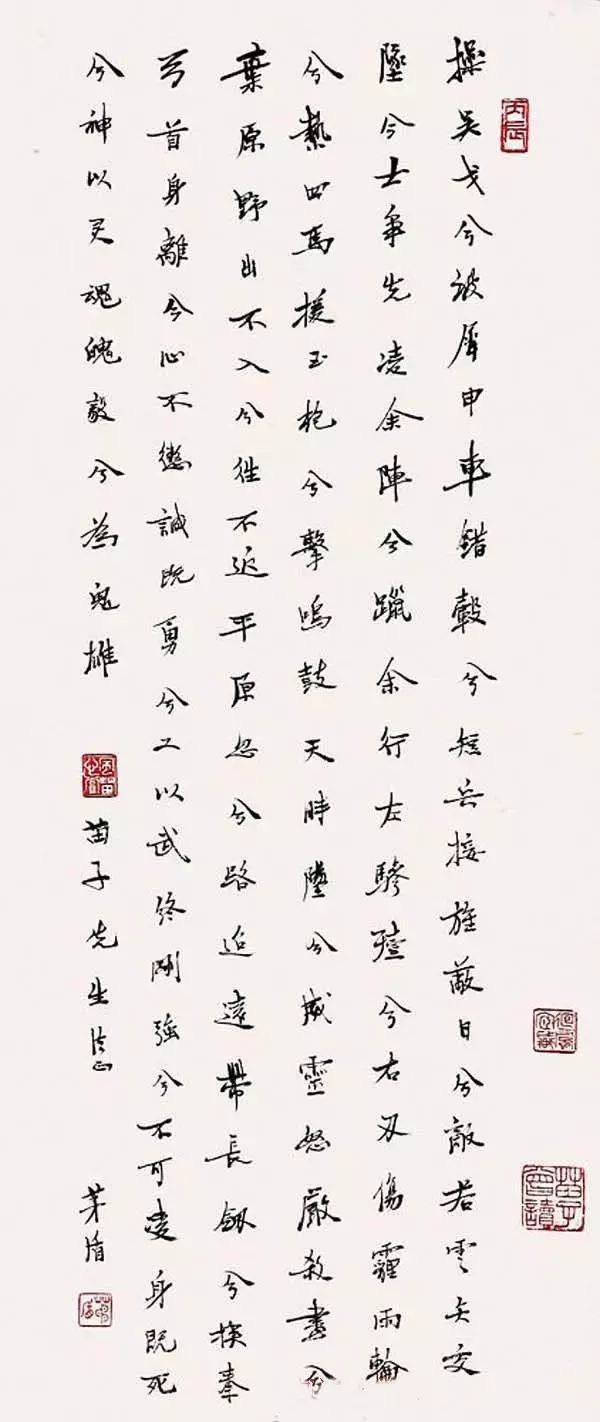 丙辰
操吴戈兮被犀甲車錯轂兮短兵接旌蔽日兮敵若雲矢交
墜兮士爭先凌余陣兮躐余行左驂殪兮右刃傷霾兩輪
兮縶四馬援玉枹兮擊鳴鼓天時墜兮威靈怒嚴殺盡兮
棄原野出不入兮往不返平原忽兮路迢遠帶長劍兮挾秦
弓首身離兮心不懲誠既勇兮又以武終剛強兮不可凌身既死
兮神以灵魂魄毅兮為鬼雄
苗子先生法正
茅盾
苗子曾讀